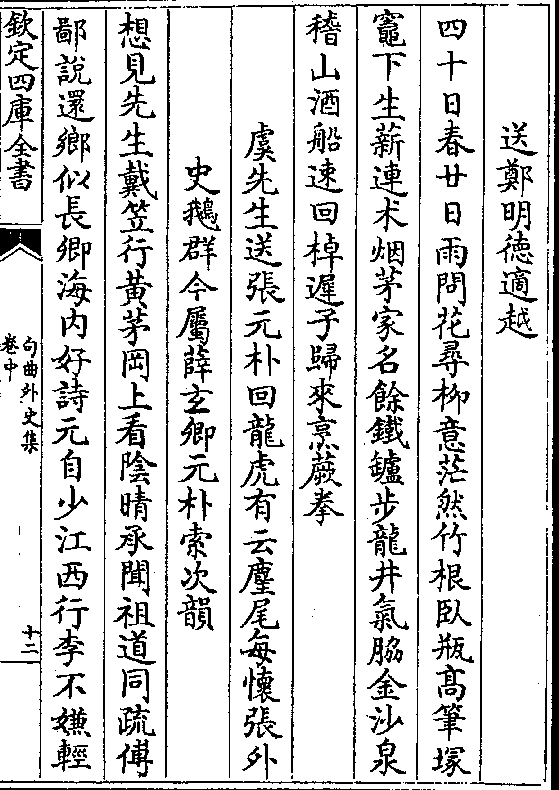 送鄭明德適越
四十日春廿日雨問花尋柳意茫然竹根臥瓶高筆塚
竈下生薪連术烟茅家名餘鐵鑪步龍井氣脇金沙泉
稽山酒船速回棹遲子歸來烹蕨拳
虞先生送張元朴回龍虎有云麈尾每懷張外
史鵝群今屬薛玄卿元朴索次韻
想見先生戴笠行黃茅岡上看陰晴承聞祖道同疏傅
鄙說還鄉似長卿海内好詩元自少江西行李不嫌輕
欽定四庫全書
句曲外史集
卷中
十二